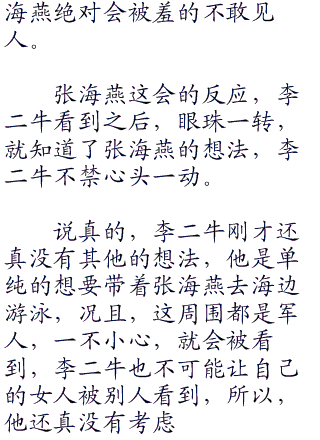 海燕绝对会被羞的不敢见
人。
张海燕这会的反应，李
二牛看到之后，眼珠一转，
就知道了张海燕的想法，李
二牛不禁心头一动。
说真的，李二牛刚才还
真没有其他的想法，他是单
纯的想要带着张海燕去海边
游泳，况且，这周围都是军
人，一不小心，就会被看
到，李二牛也不可能让自己
的女人被别人看到，所以，
他还真没有考虑